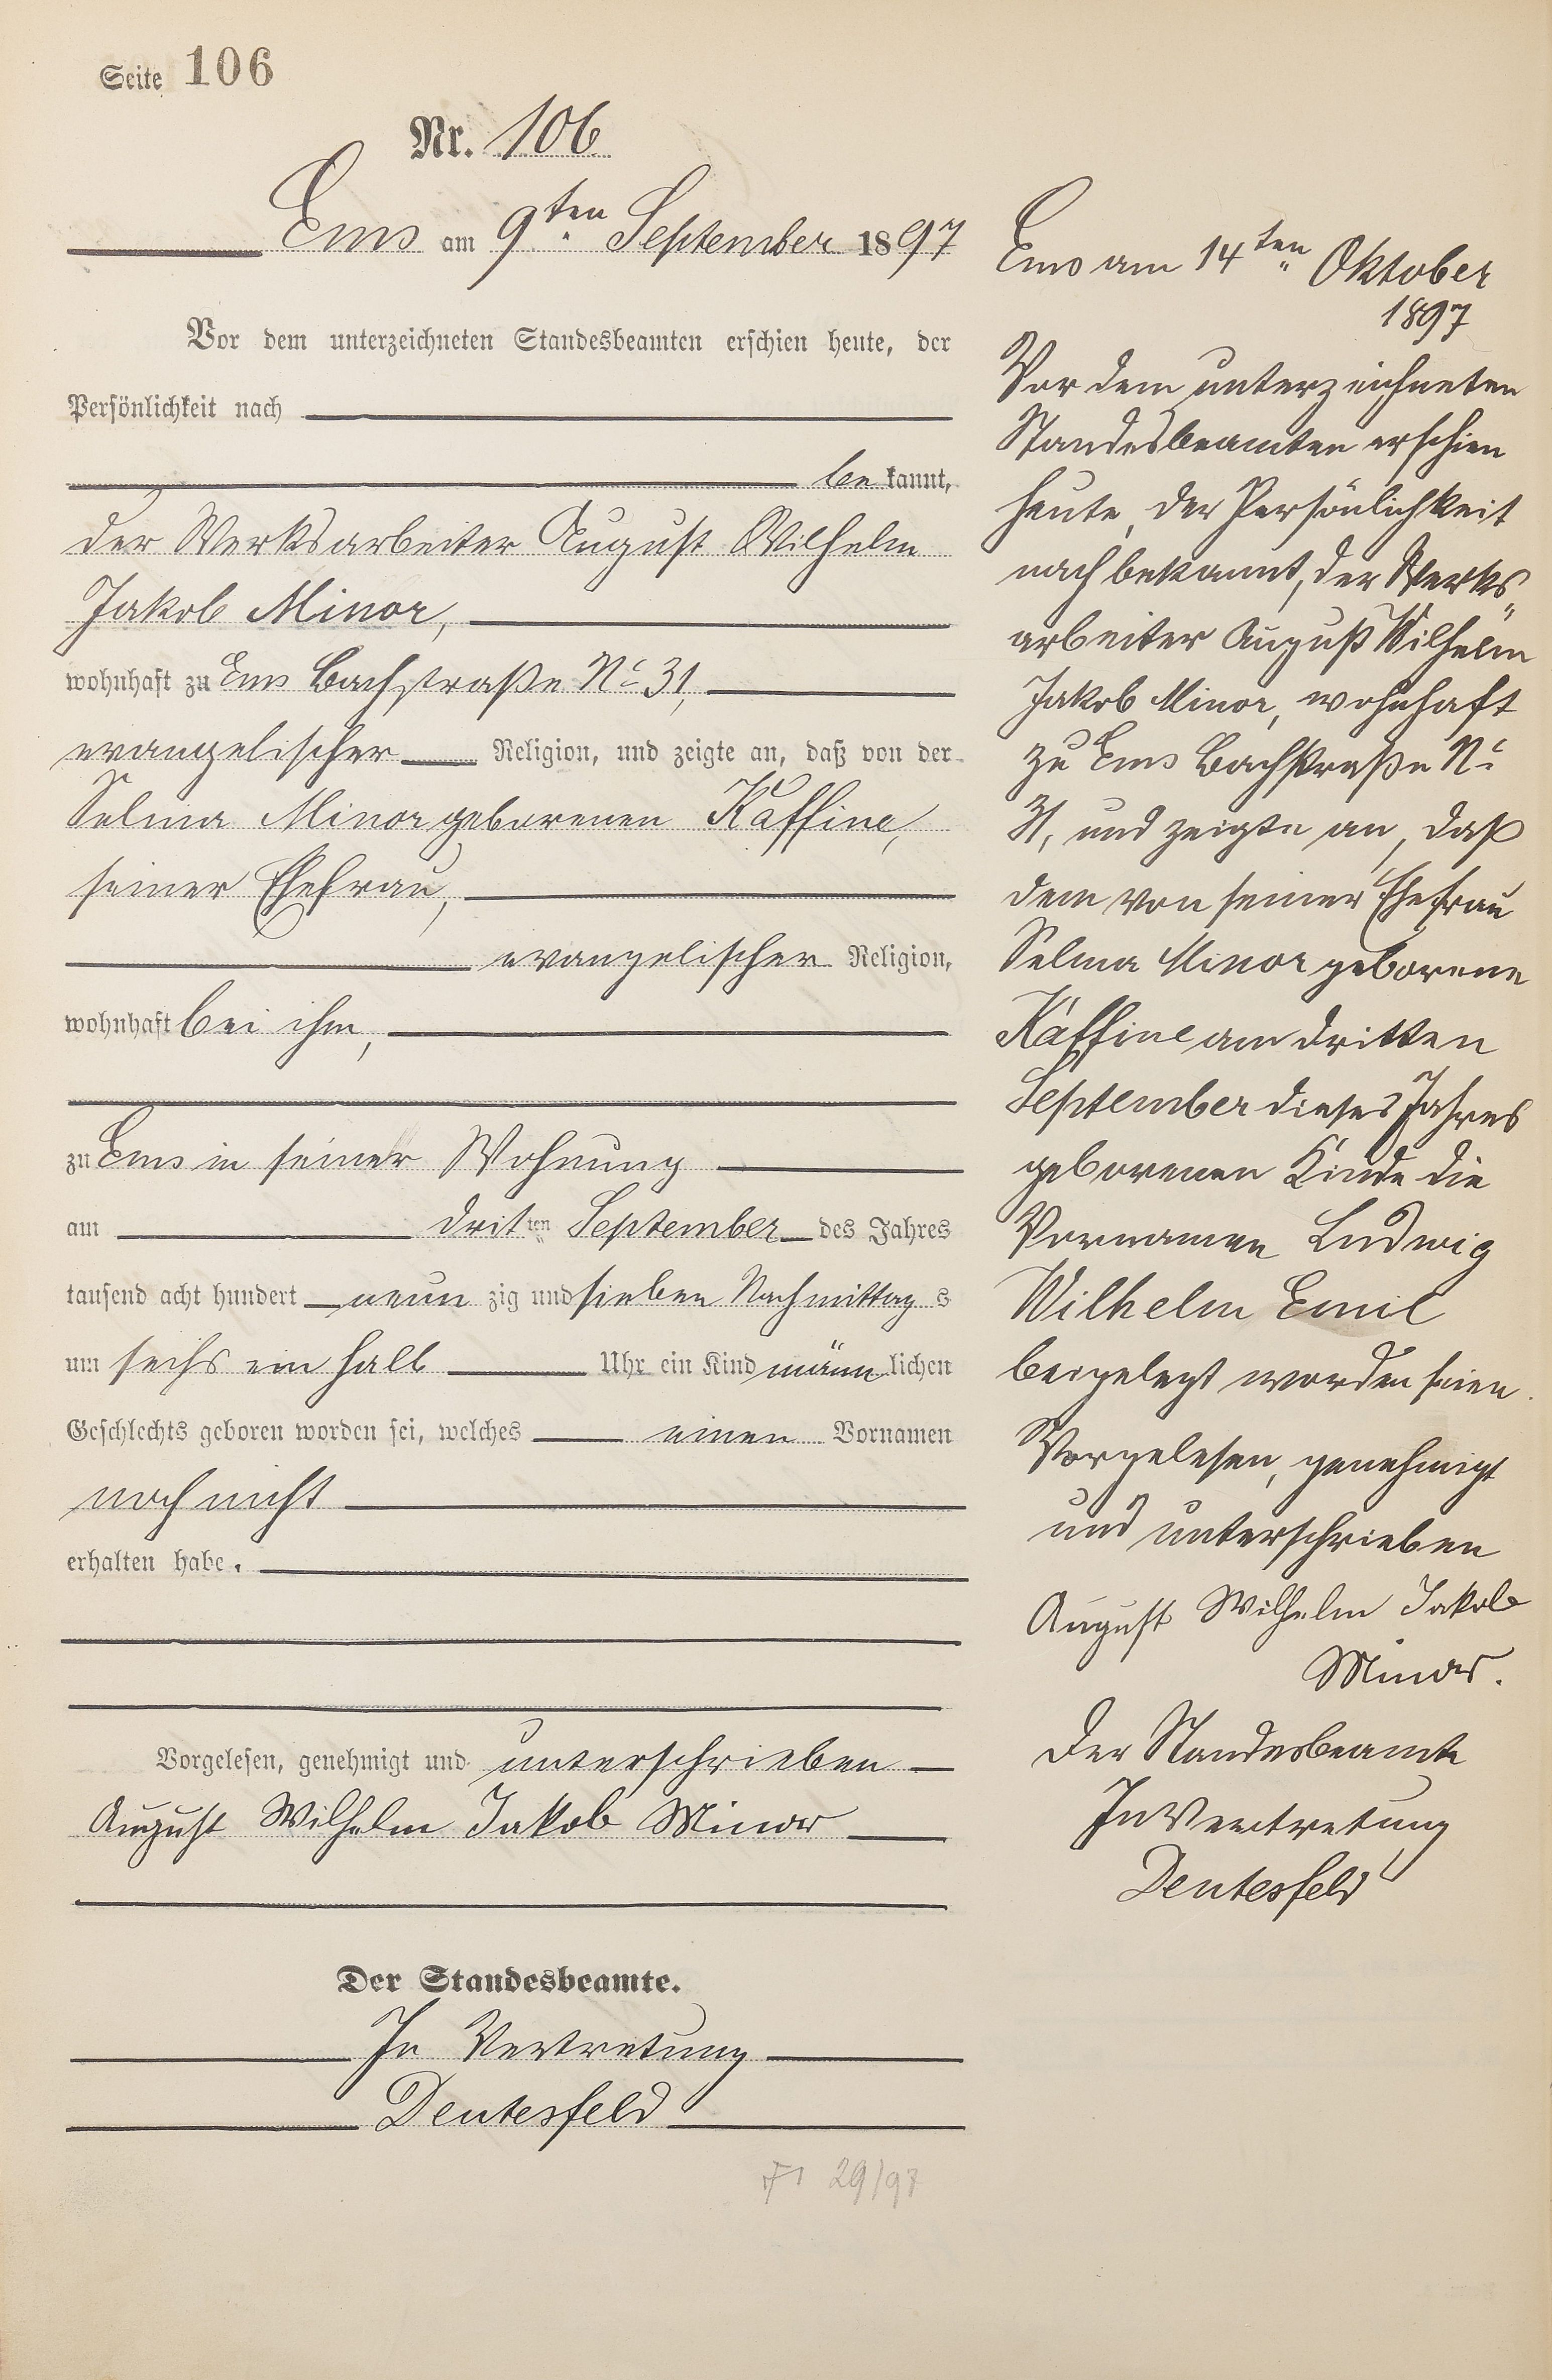 Seite 106
Nr. 106
Ems am 9ten September 1897
Vor dem unterzeichneten Standesbeamten erschien heute, der
Persönlichkeit nach
be kannt,
der Werksarbeiter August Wilhelm
Jakob Minor,
wohnhaft zu Ems Bachstraße No 31,
evangelischer Religion, und zeigte an, daß von der
Selma Minor geborenen Kaffine,
seiner Ehefrau,
evangelischer Religion,
wohnhaft bei ihm,
zu Ems in seiner Wohnung
am dritten September des Jahres
tausend acht hundert neun zig und sieben Nachmittag s
um sechs ein halb Uhr ein Kind männ lichen
Geschlechts geboren worden sei, welches einen Vornamen
noch nicht
erhalten habe.
Vorgelesen, genehmigt und unterschrieben
August Wilhelm Jakob Minor
Der Standesbeamte.
In Vertretung
Deutesfeld
29/97
Ems am 14ten Oktober
1897
Vor dem unterzeichneten
Standesbeamten erschien
heute, der Persönlichkeit
nach bekannt, der Werks„
arbeiter August Wilhelm
Jakob Minor, wohnhaft
zu Ems Bachstraße No
31, und zeigte an, daß
dem von seiner Ehefrau
Selma Minor geborene
Kaffine am dritten
September dieses Jahres
geborenen Kinde die
Vornamen Ludwig
Wilhelm Emil
beigelegt worden seien.
Vorgelesen, genehmigt
und unterschrieben
August Wilhelm Jakob
Minor.
Der Standesbeamte
In Vertretung
Deutesfeld